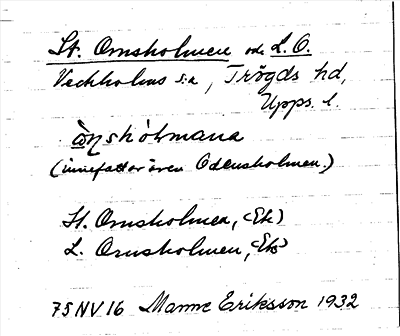 St. Ornsholmen och L. O.
Veckholms sn, Trögds hd,
Upps. l.
ònshòlmana
(innefattar även Odensholmen.)
St. Ornsholmen, (Ek)
L. Ornsholmen, (Ek)
75 NV 16 Manne Eriksson 1932